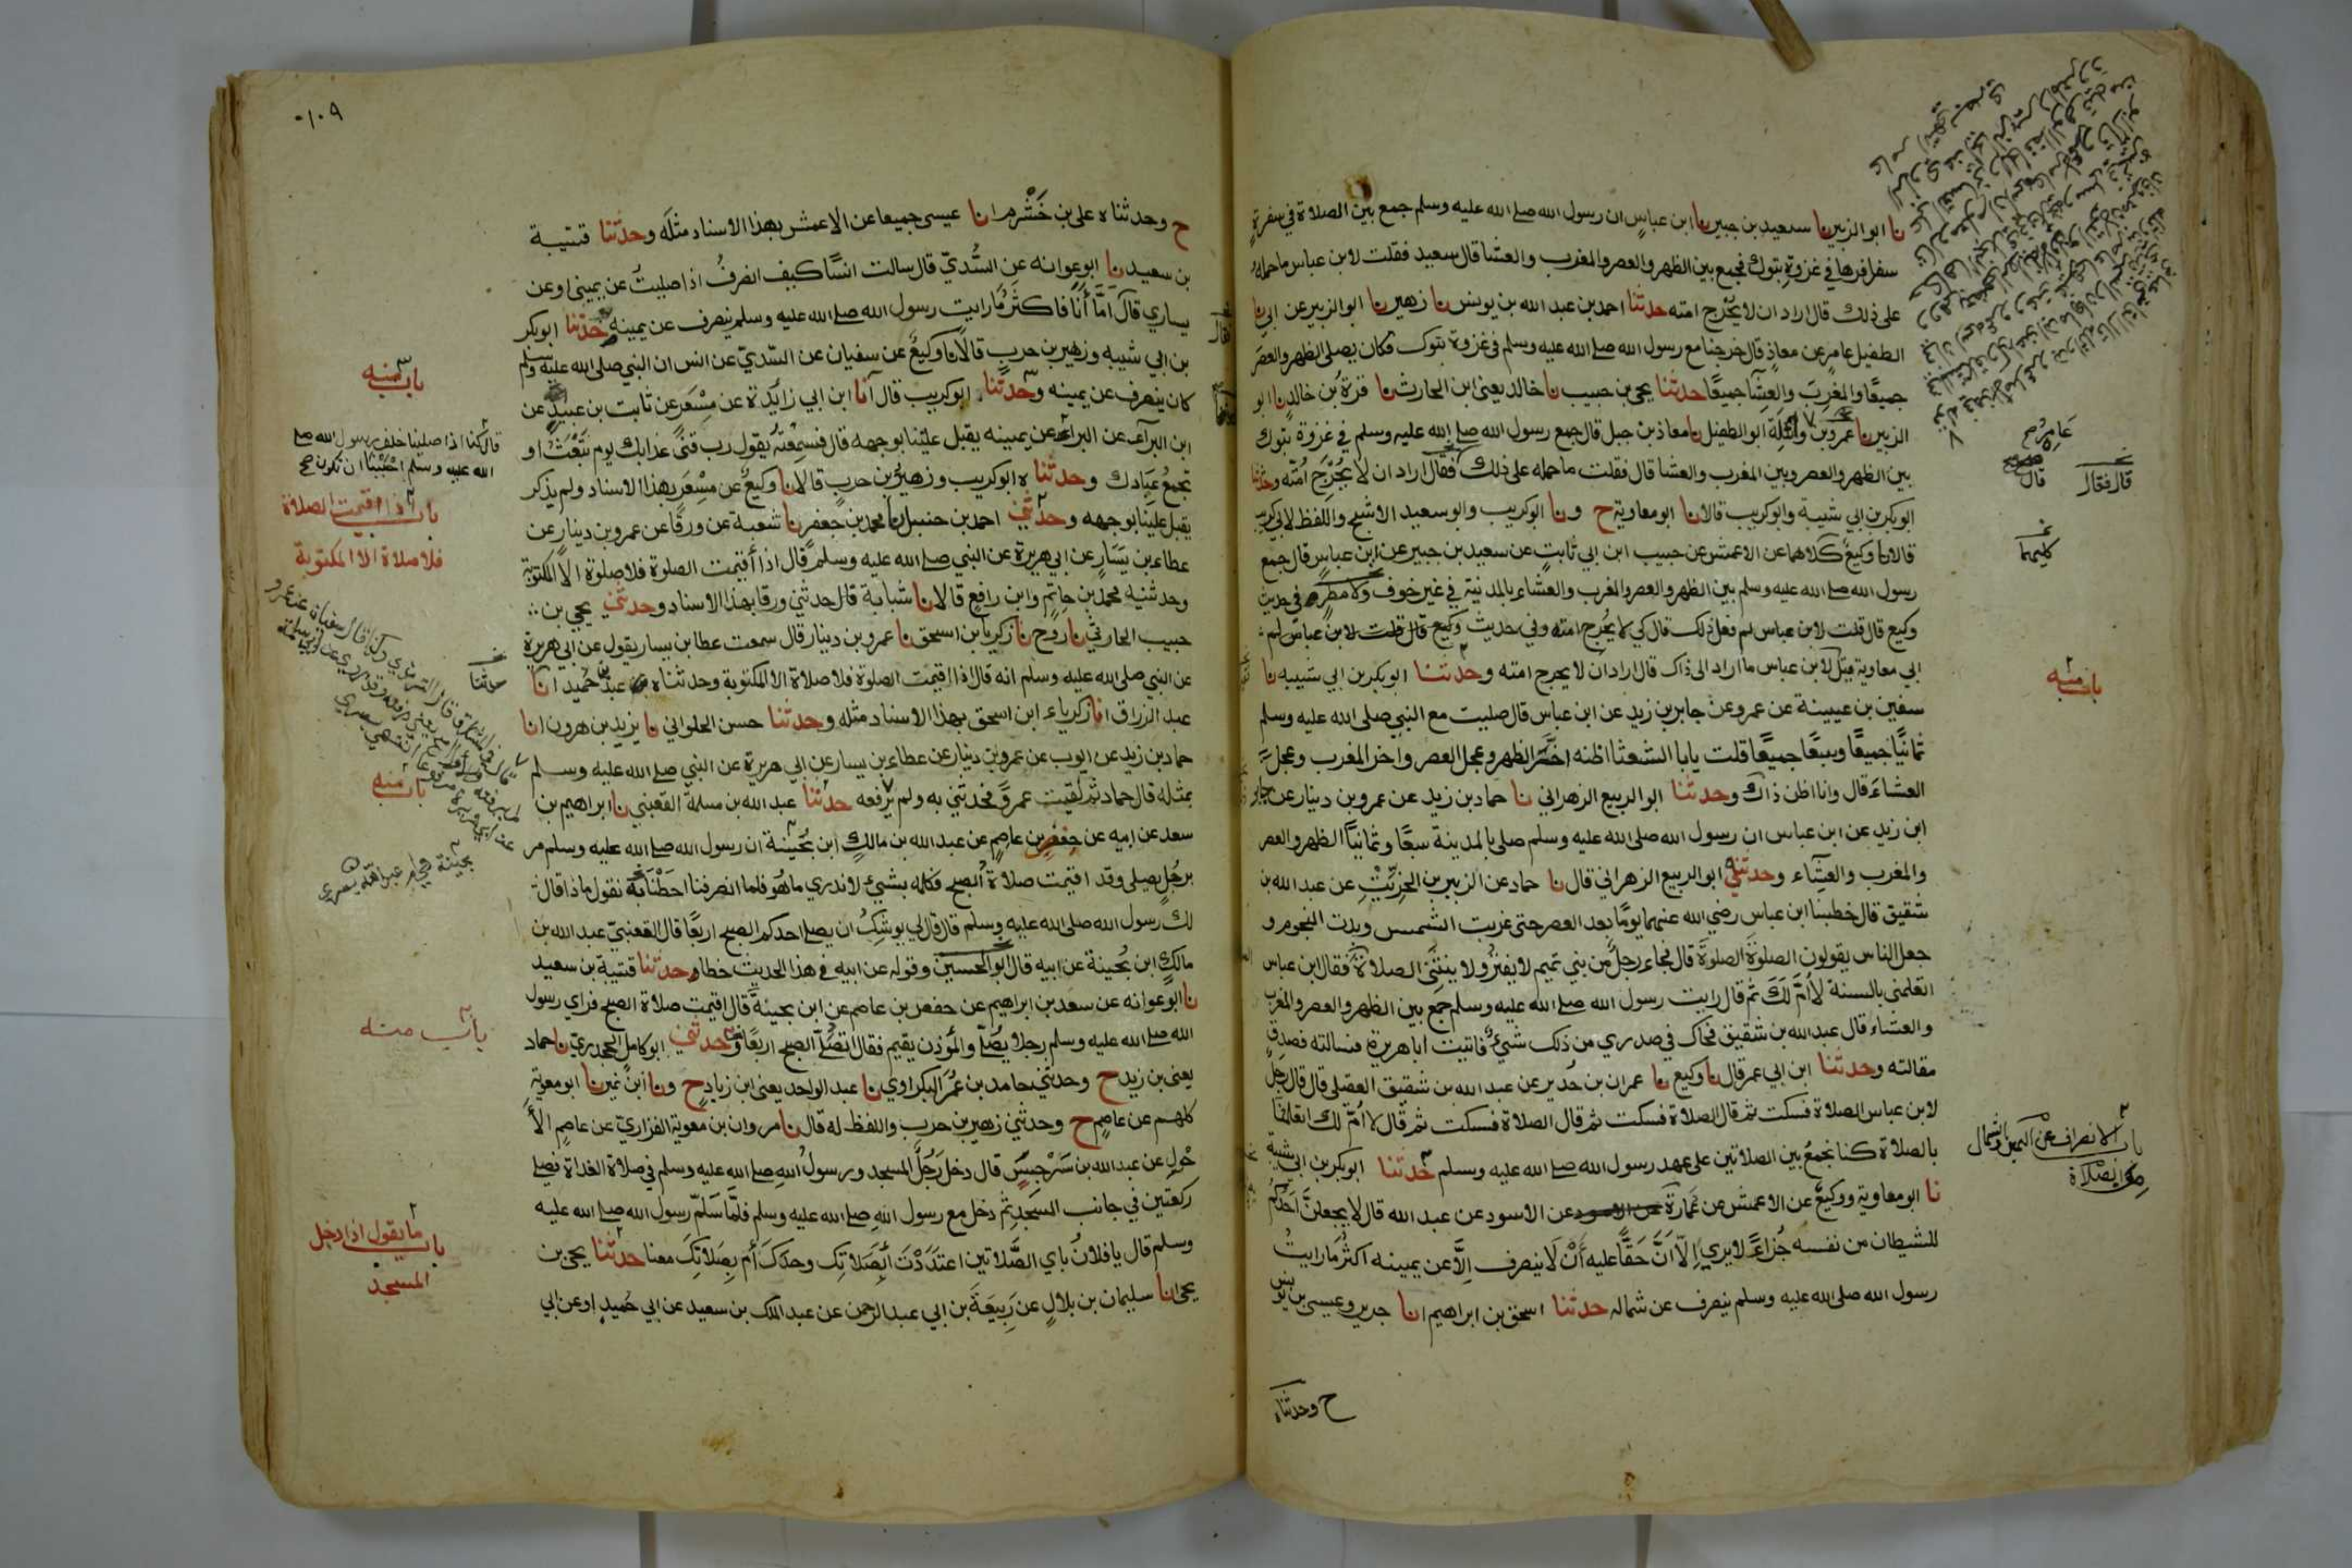 نا ابو الزبير نا سعيد بن جبير نا ابن عباس ان رسول الله صلى الله عليه وسلم جمع بين الصلاة في سفرة
سفرها في غزوة تبوك فجمع بين الظهر والعصر والمغرب والعشا قال سعيد فقلت لابن عباس ما حمله
على ذلك قال اراد ان لا يحرج امته حدثنا احمد بن عبد الله بن يونس نا زهير نا ابو الزبير عن ابي
الطفيل عامر عن معاذ قال خرجنا مع رسول الله صلى الله عليه وسلم في غزوة تبوك فكان يصلي الظهر والعصر
جميعا والمغرب والعشا جميعا حدثنا يحيى بن حبيب نا خالد يعني ابن الحارث نا قرة بن خالد نا ابو
الزبير نا عمرو بن واثلة ابو الطفيل نا معاذ بن جبل قال جمع رسول الله صلى الله عليه وسلم في غزوة تبوك
بين الظهر والعصر وبين المغرب والعشا قال فقلت ما حمله على ذلك فقال اراد ان لا يحرج امته وحدثنا
ابو بكر بن ابي شيبة وابو كريب قالا نا ابو معاوية ح ونا ابو كريب وابو سعيد الاشج واللفظ لابي كريب
قالا نا وكيع كلاهما عن الاعمش عن حبيب ابن ابي ثابت عن سعيد بن جبير عن ابن عباس قال جمع
رسول الله صلى الله عليه وسلم بين الظهر والعصر والمغرب والعشاء بالمدينة في غير خوف ولا مطر في حديث
وكيع قال قلت لابن عباس لم فعل ذلك قال كي لا يحرج امته وفي حديث
ابي معاوية قيل لابن عباس ما اراد الى ذاك قال اراد ان لا يحرج امته وحدثنا ابو بكر بن ابي شيبه نا
سفين بن عيينة عن عمرو عن جابر بن زيد عن ابن عباس قال صليت مع النبي صلى الله عليه وسلم
ثمانيا جميعا وسبعا جميعا قلت يابا الشعثا اظنه اخر الظهر وعجل العصر واخر المغرب وعجل
العشاء قال وانا اظن ذاك وحدثنا ابو الربيع الزهراني نا حماد بن زيد عن عمرو بن دينار عن جابر
ابن زيد عن ابن عباس ان رسول الله صلى الله عليه وسلم صلى بالمدينة سبعا وثمانيا الظهر والعصر
والمغرب والعشاء وحدثني ابو الربيع الزهراني قال نا حماد عن الزبير بن الخريت عن عبد الله بن
شقيق قال خطبنا ابن عباس رضي الله عنهما يوما بعد العصر حتى غربت الشمس وبدت النجوم و
جعل الناس يقولون الصلوة الصلوة قال فجاء رجل من بني تميم لا يفتر ولا ينثني الصلاة فقال ابن عباس
اتعلمني بالسنة لا ام لك ثم قال رايت رسول الله صلى الله عليه وسلم جمع بين الظهر والعصر والمغرب
والعشاء قال عبد الله بن شقيق فحاك في صدري من ذلك شيء فاتيت ابا هريرة فسالته فصدق
مقالته وحدثنا ابن ابي عمر قال نا وكيع نا عمران بن حدير عن عبد الله بن شقيق العقيلي قال قال رجل
لابن عباس الصلاة فسكت ثم قال الصلاة فسكت ثم قال الصلاة فسكت ثم قال لا ام لك اتعلمنا
بالصلاة كنا نجمع بين الصلاتين على عهد رسول الله صلى الله عليه وسلم حدثنا ابو بكر بن ابي شيبة
نا ابو معاوية ووكيع عن الاعمش عن عمارة عن الاسود عن عبد الله قال لا يجعلن احدكم
للشيطان من نفسه جزاء لا يرى الا ان حقا عليه ان لا ينصرف الا عن يمينه اكثر ما رايت
رسول الله صلى الله عليه وسلم ينصرف عن شماله حدثنا اسحق بن ابراهيم انا جرير وعيسى بن يونس
ح وحدثناه
عامر صح
قال فقال
قال
كليهما
باب منه
باب الانصراف عن اليمين والشمال
من الصلاة
١٠٩
ح وحدثناه علي بن خشرم انا عيسى جميعا عن الاعمش بهذا الاسناد مثله وحدثنا قتيبة
بن سعيد نا ابو عوانه عن السدي قال سالت انسا كيف انصرف اذا صليت عن يميني او عن
يساري قال اما انا فاكثر ما رايت رسول الله صلى الله عليه وسلم ينصرف عن يمينه حدثنا ابو بكر
بن ابي شيبه وزهير بن حرب قالا نا وكيع عن سفيان عن السدي عن انس ان النبي صلى الله عليه وسلم
كان ينصرف عن يمينه وحدثنا ابو كريب قال انا ابن ابي زايدة عن مسعر عن ثابت بن عبيد عن
ابن البراء عن البراء عن يمينه يقبل علينا بوجهه قال فسمعته يقول رب قني عذابك يوم تبعث او
تجمع عبادك وحدثناه ابو كريب وزهير بن حرب قالا نا وكيع عن مسعر بهذا الاسناد ولم يذكر
يقبل علينا بوجهه وحدثني احمد بن حنبل نا محمد بن جعفر نا شعبة عن ورقا عن عمرو بن دينار عن
عطاء بن يسار عن ابي هريرة عن النبي صلى الله عليه وسلم قال اذا أقيمت الصلوة فلا صلوة الا المكتوبة
وحدثنيه محمد بن حاتم وابن رافع قالا نا شبابة قال حدثني ورقا بهذا الاسناد وحدثني يحيى بن
حبيب الحارثي نا روح نا زكريا بن اسحق نا عمرو بن دينار قال سمعت عطا بن يسار يقول عن ابي هريرة
عن النبي صلى الله عليه وسلم انه قال اذا اقيمت الصلوة فلا صلاة الا المكتوبة وحدثناه عبد بن حميد انا
عبد الرزاق انا زكرياء ابن اسحق بهذا الاسناد مثله وحدثنا حسن الحلواني نا يزيد بن هرون انا
حماد بن زيد عن ايوب عن عمرو بن دينار عن عطاء بن يسار عن ابي هريرة عن النبي صلى الله عليه وسلم
بمثله قال حماد ثم لقيت عمرو فحدثني به ولم يرفعه حدثنا عبد الله بن مسلمة القعنبي نا ابراهيم بن
سعد عن ابيه عن حفص بن عاصم عن عبد الله بن مالك ابن بحينة ان رسول الله صلى الله عليه وسلم مر
برجل يصلي وقد اقيمت صلاة الصبح فكلمه بشيء لا ندري ما هو فلما انصرفنا احطنا به نقول ماذا قال
لك رسول الله صلى الله عليه وسلم قال قال لي يوشك ان يصلي احدكم الصبح اربعا قال القعنبي عبد الله بن
مالك ابن بحينة عن ابيه قال ابو الحسين وقوله عن ابيه في هذا الحديث خطا وحدثنا قتيبة بن سعيد
نا ابو عوانه عن سعد بن ابراهيم عن حفص بن عاصم عن ابن بحينة قال اقيمت صلاة الصبح فراي رسول
الله صلى الله عليه وسلم رجلا يصلي والمؤذن يقيم فقال اتصلي الصبح اربعا وحدثني ابو كامل الجحدري نا حماد
يعني بن زيد ح وحدثني حامد بن عمر البكراوي نا عبد الواحد يعني ابن زياد ح ونا ابن نمير نا ابو معوية
كلهم عن عاصم ح وحدثني زهير بن حرب واللفظ له قال نا مروان بن معوية الفزاري عن عاصم الأ
حول عن عبد الله بن سرجس قال دخل رجل المسجد ورسول الله صلى الله عليه وسلم في صلاة الغداة فصلى
ركعتين في جانب المسجد ثم دخل مع رسول الله صلى الله عليه وسلم فلما سلم رسول الله صلى الله عليه
وسلم قال يا فلان باي الصلاتين اعتددت أبصلاتك وحدك أم بصلاتك معنا حدثنا يحيى بن
يحيى انا سليمان بن بلال عن ربيعة بن ابي عبد الرحمن عن عبد الملك بن سعيد عن ابي حميد او عن ابي
باب منه
قال كنا اذا صلينا خلف رسول الله صلى
الله عليه وسلم احببنا ان نكون صح
باب اذا اقيمت الصلاة
فلا صلاة الا المكتوبة
حدثنا
باب منه
باب منه
باب ما يقول اذا دخل
المسجد